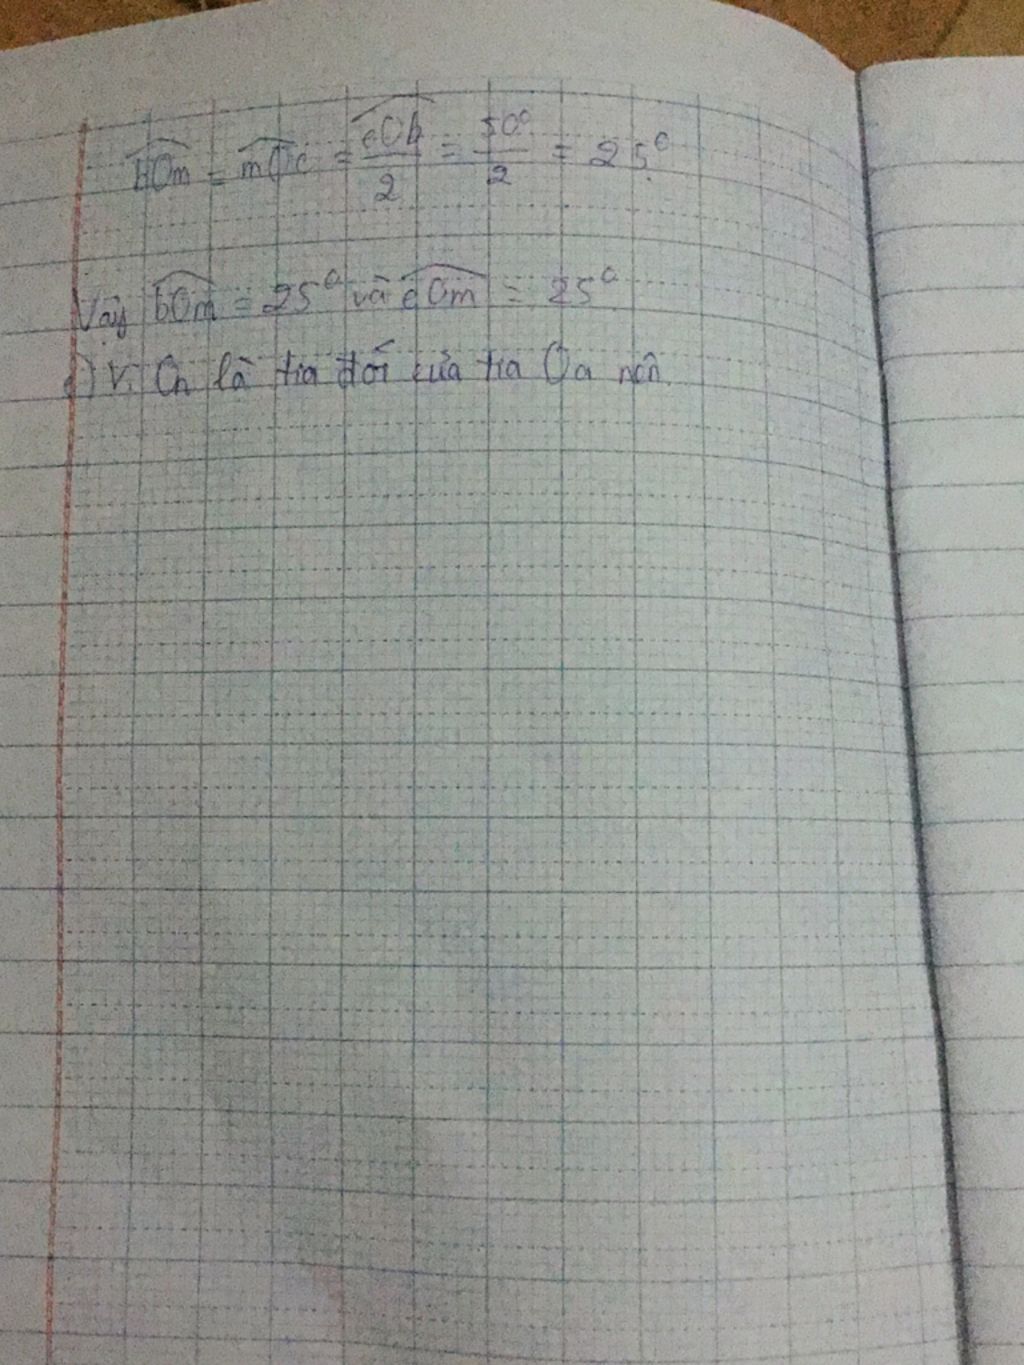 bOm = mOc = cOb / 2 = 50° / 2 = 25°
Vậy bOm = 25° và cOm = 25°
Vì On là tia đối của tia Oa nên